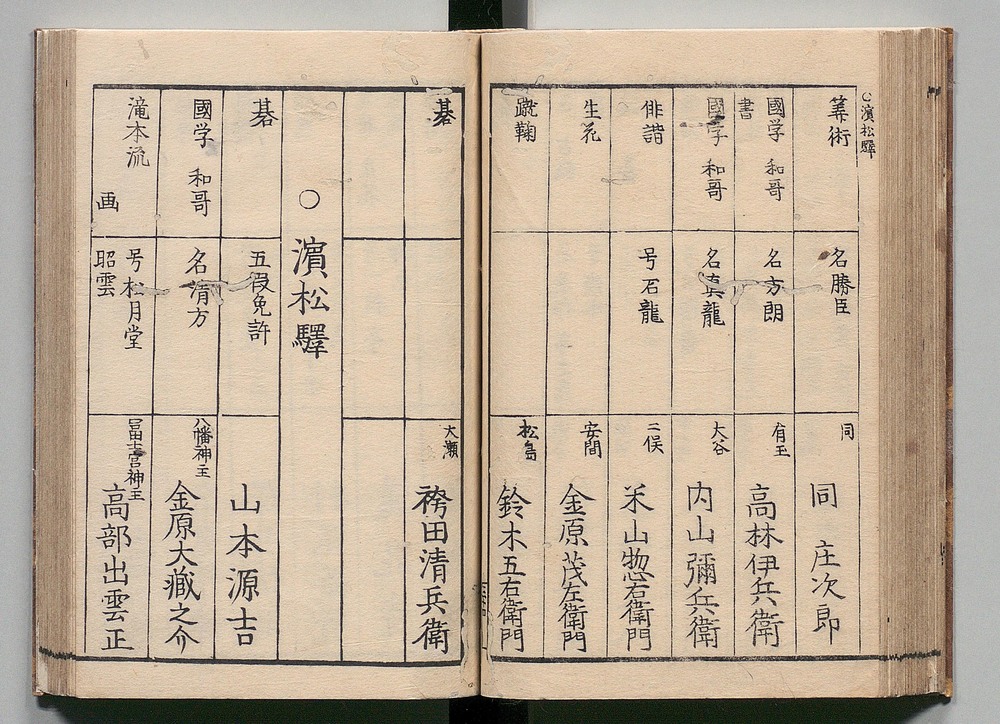 ○濱松驛
筭術 名勝臣 同 同 庄次郎
國学 和哥 書 名方朗 有玉 高林伊兵衛
國学 和哥 名真龍 大谷 内山彌兵衛
俳諧 号石龍 二俣 米山惣右衛門
生花 安間 金原茂左衛門
蹴鞠 松島 鈴木五右衛門
碁 大瀬 袴田清兵衛
○ 濱松驛
碁 五段免許 山本源吉
國学 和哥 名清方 八幡神主 金原大蔵之介
滝本流 画 号松月堂 昭雲 冨士宮神主 高部出雲正